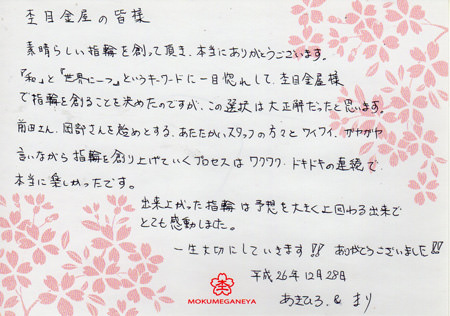 杢目金屋の皆様
素晴らしい指輪を創って頂き、本当にありがとうございます。
『和』と『世界に一つ』というキーワードに一目惚れして、杢目金屋様
で指輪を創ることを決めたのですが、この選択は大正解だったと思います。
前田さん、岡部さんを始めとする、あたたかいスタッフの方々とワイワイ、ガヤガヤ
言いながら指輪を創り上げていくプロセスはワクワク、ドキドキの連続で
本当に楽しかったです。
出来上がった指輪は予想を大きく上回わる出来で
とても感動しました。
一生大切にしていきます!! ありがとうございました!!
平成26年12月28日
あきひろ & まり
MOKUMEGANEYA